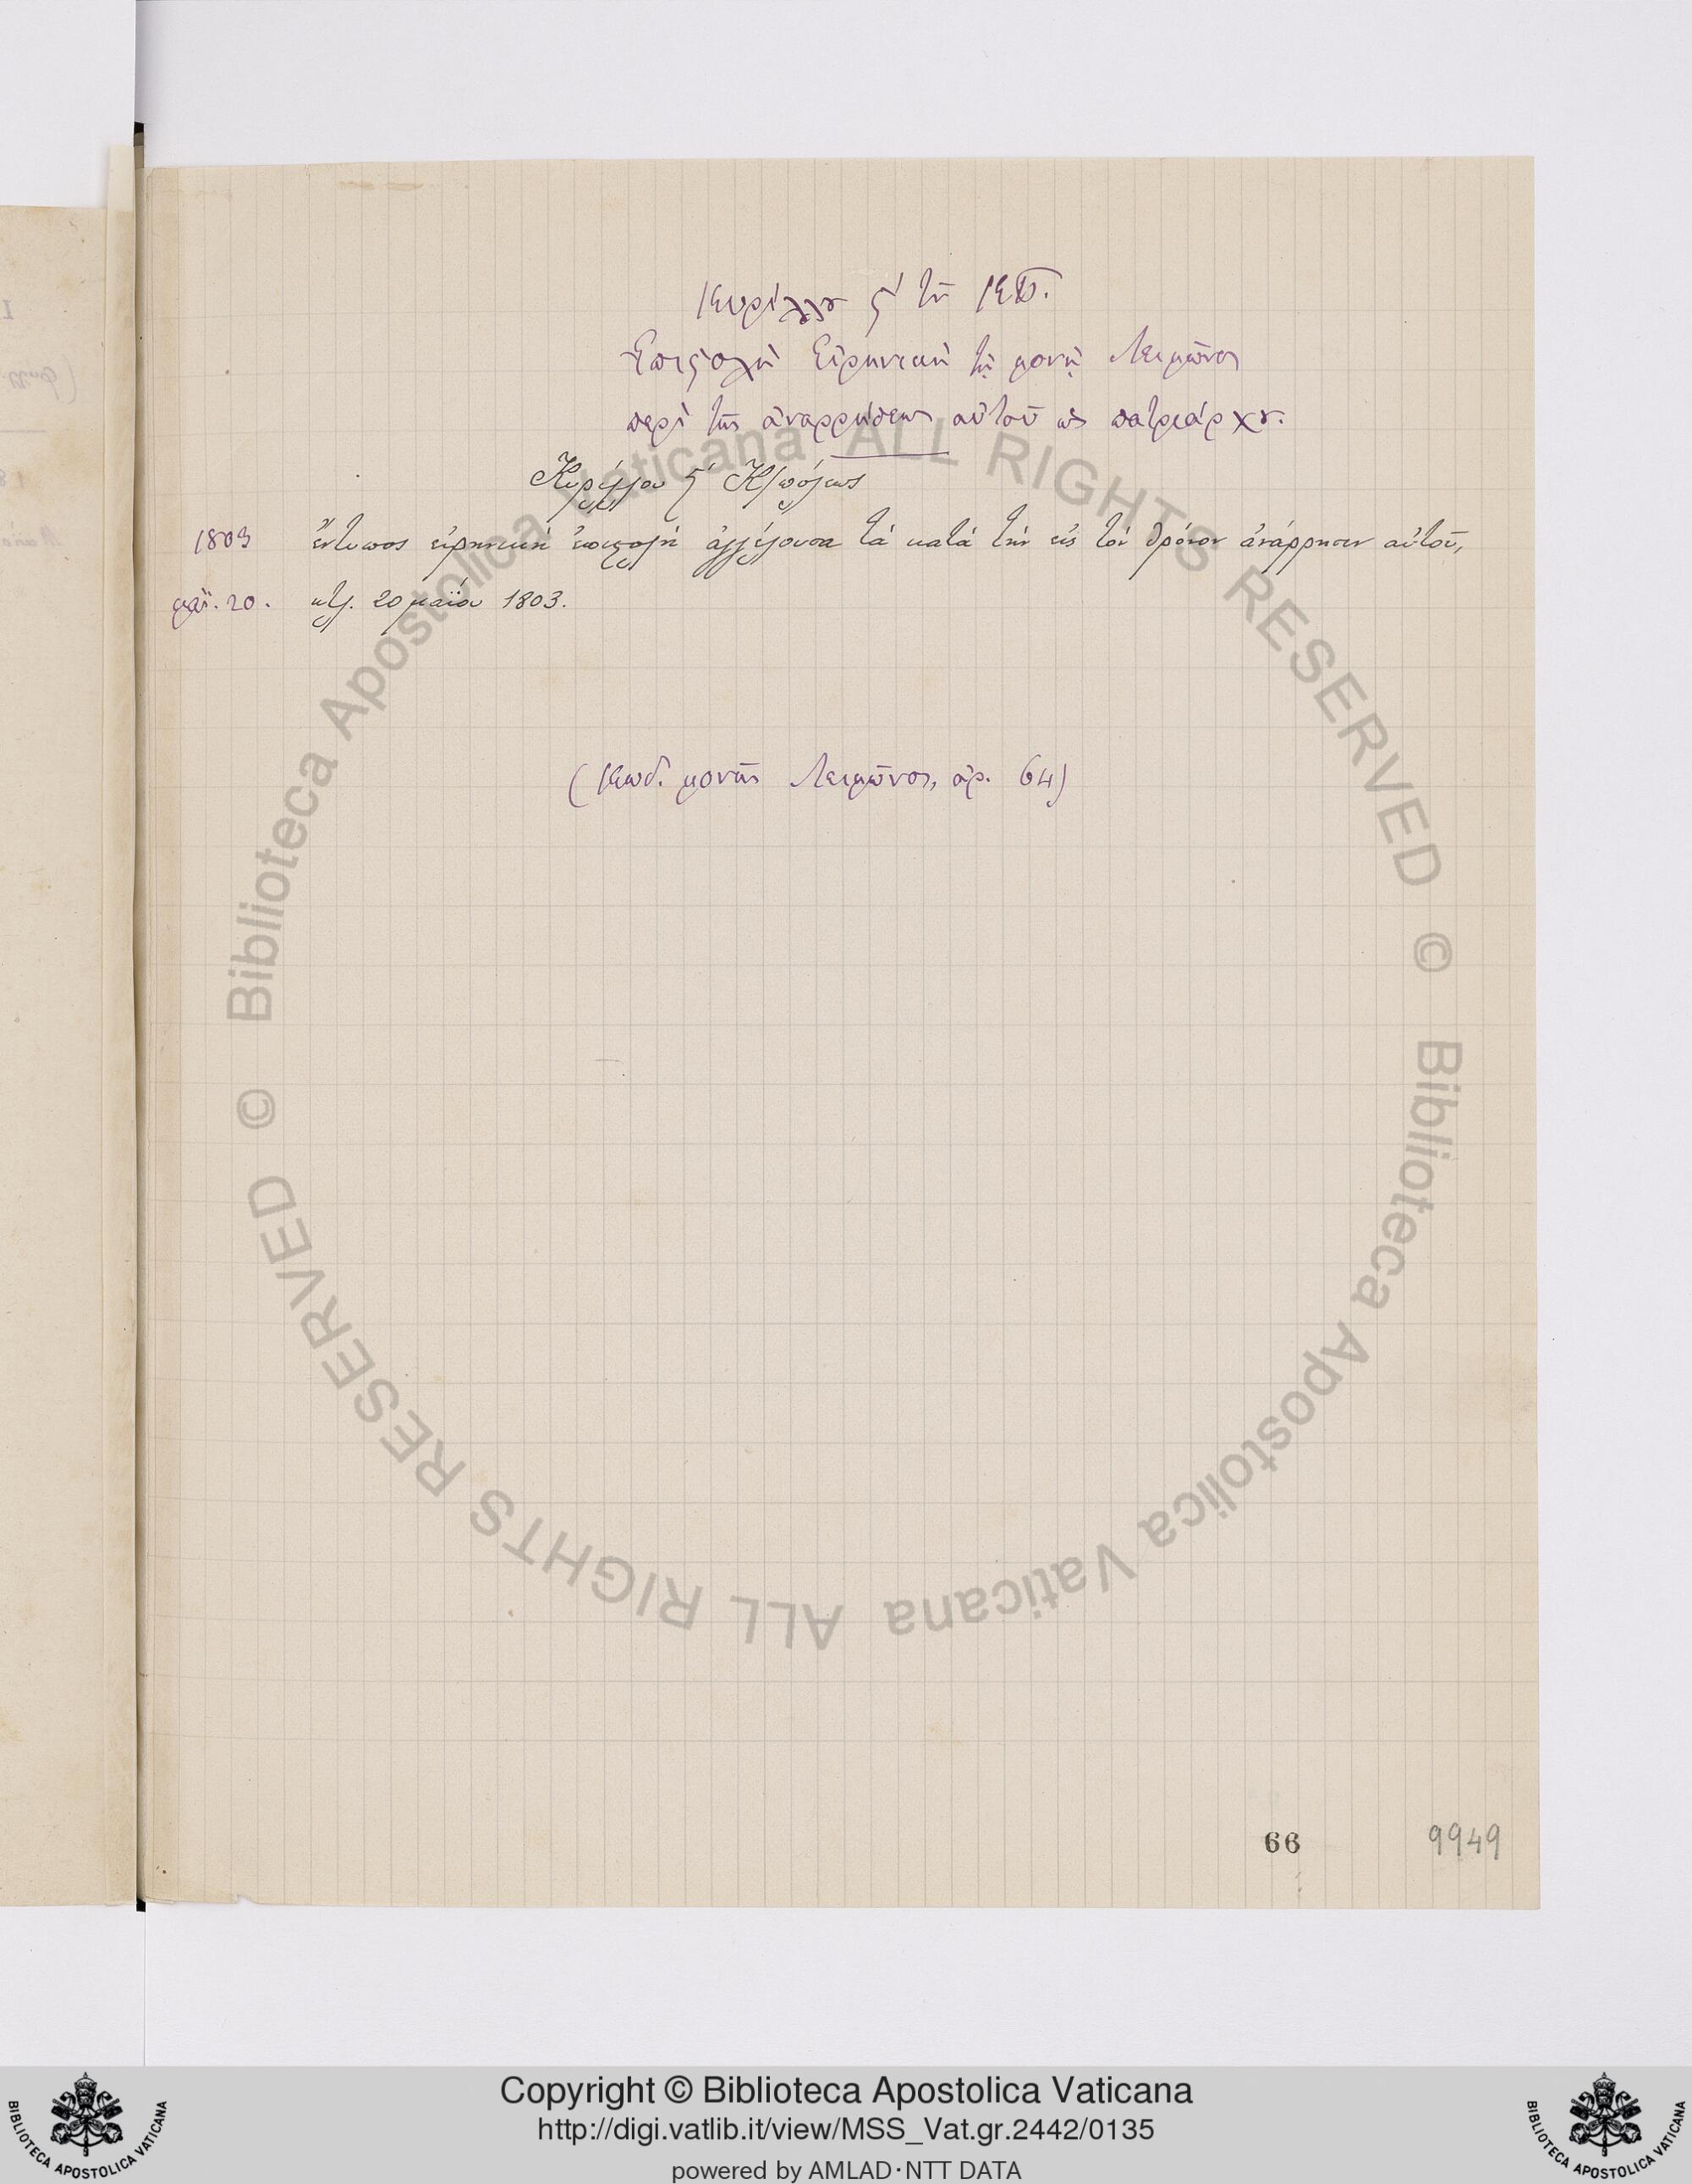 Κυρίλλου ς΄ τοῦ ΚΠ.
Ἐπιστολὴ Εἰρηνικὴ τῇ μονῇ Λειμῶνος
περὶ τῆς ἀναρρήσεως αὐτοῦ ὡς πατριάρχου.
Κυρίλλου ς΄ Κ/πόλεως
1803 ἔντυπος εἰρηνικὴ ἐπιστολὴ ἀγγέλουσα τὰ κατὰ τὴν εἰς τὸν θρόνον ἀνάρρησιν αὐτοῦ,
μαΐ. 20. κτλ. 20 μαΐου 1803.
(Κωδ. μονῆς Λειμῶνος, ἀρ. 64)
66 9949
© Biblioteca Apostolica Vaticana ALL RIGHTS RESERVED
© Biblioteca Apostolica Vaticana ALL RIGHTS RESERVED
Copyright © Biblioteca Apostolica Vaticana
http://digi.vatlib.it/view/MSS_Vat.gr.2442/0135
powered by AMLAD·NTT DATA
BIBLIOTECA APOSTOLICA VATICANA
BIBLIOTECA APOSTOLICA VATICANA